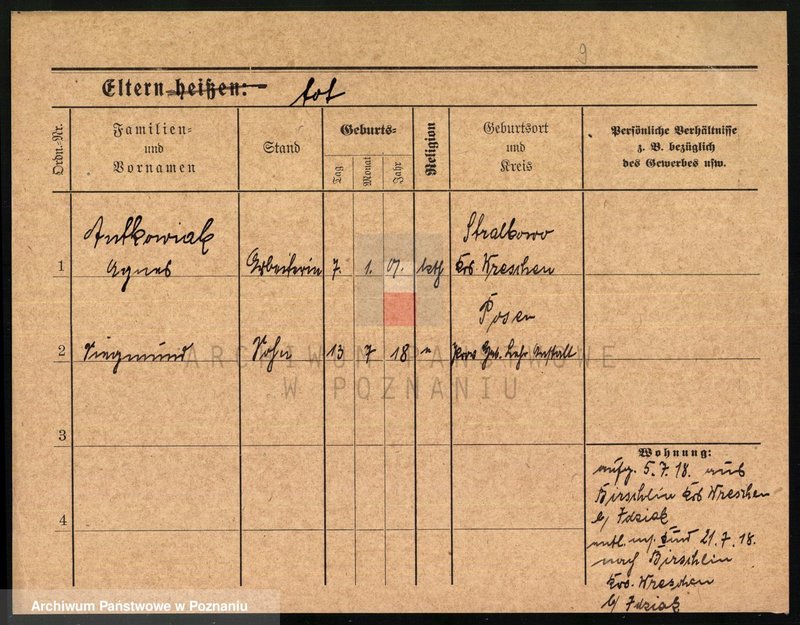 9
Eltern heißen: tot
Ordn.-Nr.
Familien=
und
Vornamen
Stand
Geburts=
Tag
Monat
Jahr
Religion
Geburtsort
und
Kreis
Persönliche Verhältnisse
z. B. bezüglich
des Gewerbes usw.
Antkowiak Stralkowo
1 Agnes Arbeiterin 7. 1. 01. kath Krs. Wreschen
Posen
2 Siegmund Sohn 13 7 18 " Prov. Geb. Lehr Anstalt
ARCHIWUM PAŃSTWOWE
W POZNANIU
3
Wohnung:
aufg. 5.7.18. aus
Birschlin Krs Wreschen
b/ Idziak
4
entl. m. Kind 21.7.18.
nach Birschlin
Krs. Wreschen
b/ Idziak
Archiwum Państwowe w Poznaniu